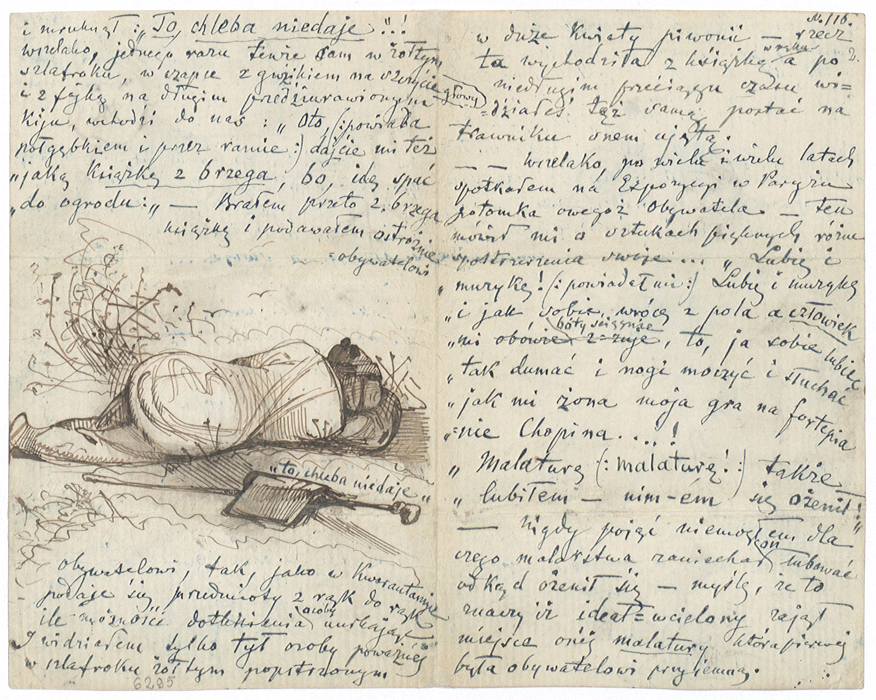 i mruknął : „To, chleba niedaje"!!
wszelako, jednego razu tenże sam w żółtym
szlafroku, w czapce z guzikiem na szczycie
głowy
i z fajką na długim przedziurawionym
kiju, wchodzi do nas : „Oto, (: powiada
półgębkiem i przez ramie :) dajcie mi też
„jaką książkę z brzega, bo, idę spać
„do ogrodu:„ — Brałem przeto z brzega
książkę i podawałem ostrożnie
obywatelowi
„to, chleba niedaje„
obywatelowi, tak, jako w Kwarantannie
podaje się przedmioty z rąk do rąk
ile możność dotknienia osoby unikając
I widziałem tylko tył osoby poważnéj
w szlafroku żółtym popstrzonym
6285
№ 116.
2.
w duże kwiaty piwonii — rzecz
ta wychodziła z książką w ręku a po
niedługim przeciągu czasu wi=
=działeś tąż samą postać na
trawniku onem ujętą.
— — wszelako, po wielu i wielu latach
spotkałem na Expozycyi w Paryżu
potomka owegoż Obywatela — ten
mówił mi o sztukach pięknych różne
spostrzeżenia swoje ... „Lubię i
„muzykę! (: powiadał mi :) Lubię i muzykę
„i jak sobie wrócę z pola a człowiek
„mi obówie z-zuje, bóty ściągnie to, ja sobie lubię
„tak dumać i nogi moczyć i słuchać
„jak mi żona moja gra na fortepia
„=nie Chopina . . . . !
„Malaturę (: malaturę! :) także
„lubiłem — nim-ém się ożenił!„
— nigdy pojąć niemogłem dla
czego malarstwa zaniechał on lubować
odkąd ożenił się — myślę, że to
znaczy iż ideał=wcielony zajął
miejsce onéj malatury która pierwéj
była obywatelowi przyjemną.